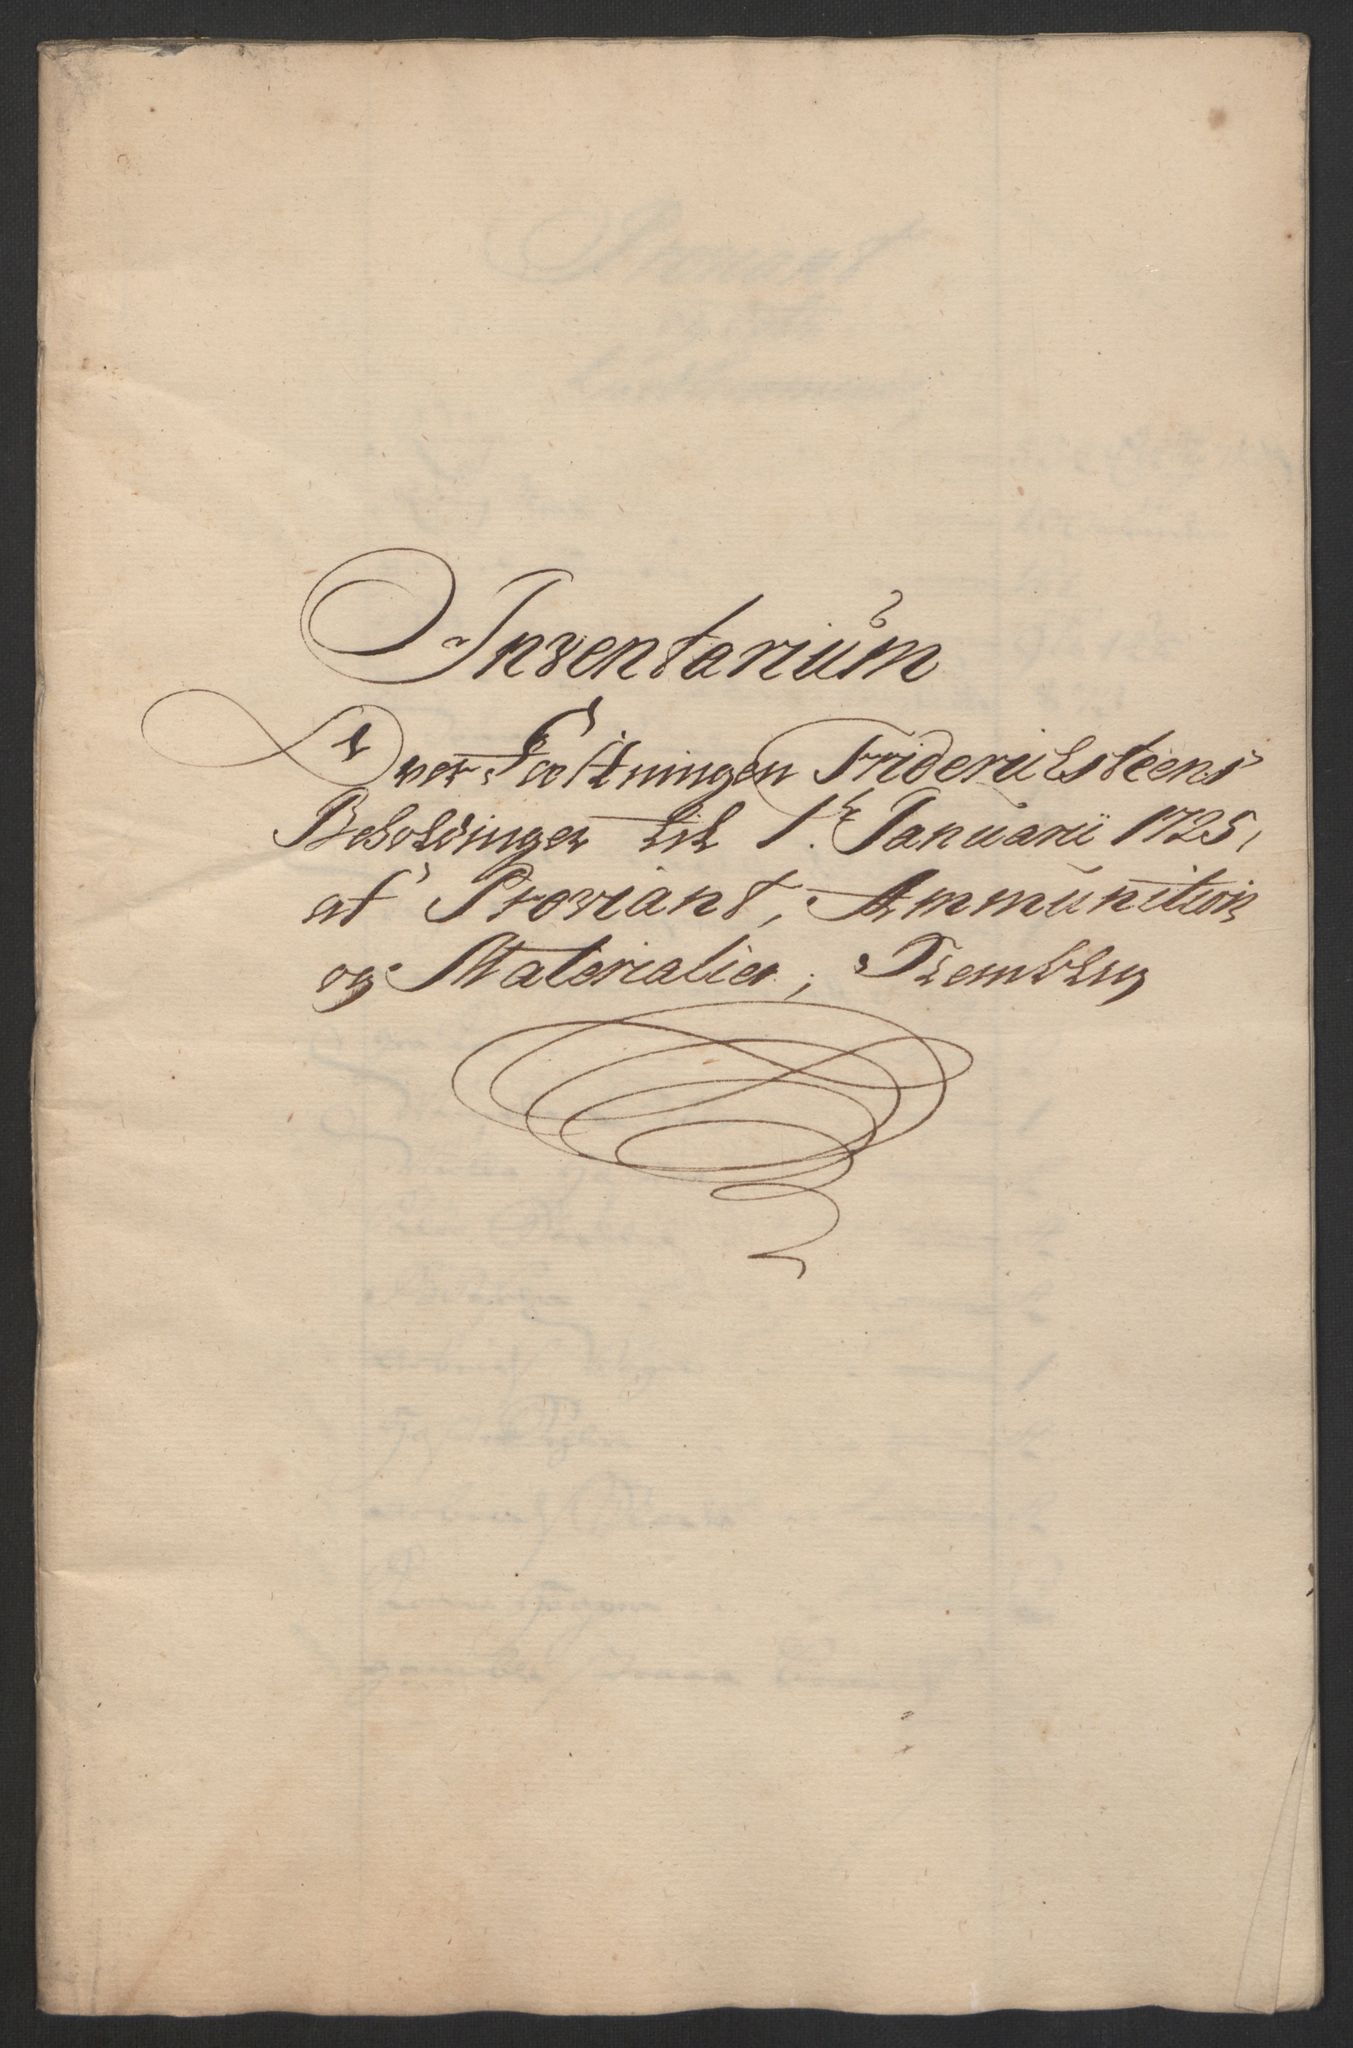 Inventarium
Over Fæstningen Friderichsteens
Beholdinger til 1te Januarii 1725,
af Proviant, Ammunition
og Materialier,